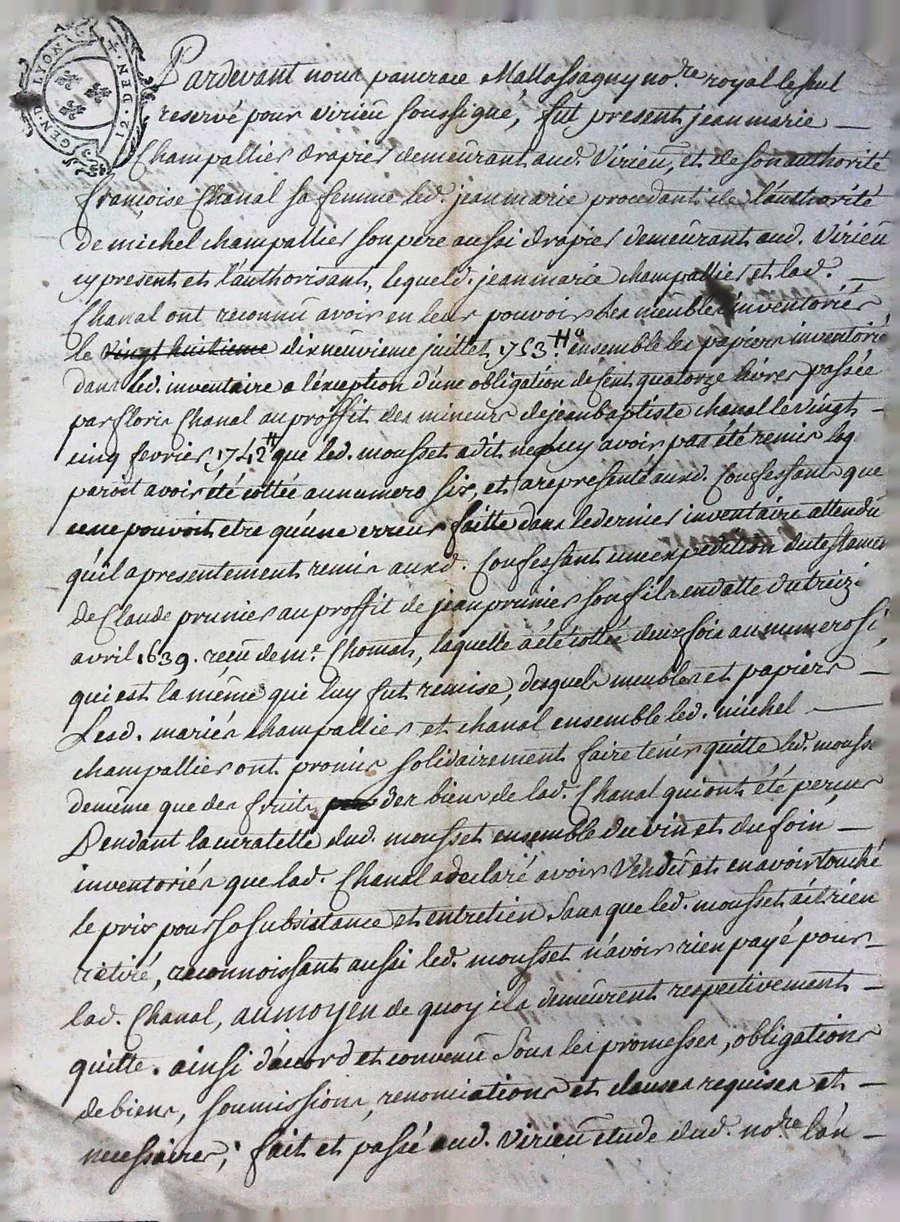 GEN. D. LION
+ DEN. D. 12
Pardevant nous pancrace Mallassagny no.re royal le seul
reservé pour virieu soussigné, fut present jean marie —
Champallier drapier demeurant aud. Virieu, et de son authorité
françoise Chanal sa femme led. jean marie procedant de l'authorité
de michel champallier son pere aussi drapier demeurant aud. Virieu
cy present et l'authorisant, lequel d. jean marie champallier et lad. —
Chanal ont reconnu avoir en leur pouvoir les meubles inventoriés
le vingt huitieme dixneuvieme juillet 1753 ensemble les papiers inventorié
dans led. inventaire a l'éxeption d'une obligation de cent quatorze livres passée
par floris Chanal au proffit des mineurs de jean baptiste chanal le vingt —
cinq fevrier 1742 que led. mousset a dit ne luy avoir pas été remis
paroit avoir été cottée au numero six, et a representé aux d. Confessant que
ce ne pouvoit etre qu'une erreur faitte dans le dernier inventaire attendu
qu'il a presentement remis aux d. Confessant une expedition du testament
de Claude prunier au proffit de jean prunier son fils en datte du treizi.
avril 1639. reçu de m.e Chomat, laquelle a été cottée deux fois au numero si,
qui est la même que luy fut remise, desquels meubles et papiers —
Lesd. mariés champallier et chanal ensemble led. michel —
champallier ont promis solidairement faire tenir quitte led. mousse
de même que des fruits des biens de lad. Chanal qui ont été percus
Pendant la curatelle dud. mousset ensemble du vin et du foin —
inventoriés que lad. Chanal a declaré avoir Vendu et en avoir touché
le prix pour sa subsistance et entretien sans que led. mousset aÿe rien
retiré, reconnoissant aussi led. mousset n'avoir rien payé pour —
lad. Chanal, au moyen de quoy ils demeurent respectivement —
quitte. ainsi d'acord et convenu sous les promesses, obligations
de biens, soumissions, renonciations et clauses requises et —
necessaires; fait et passé aud. virieu etude dud. no.re l'an —